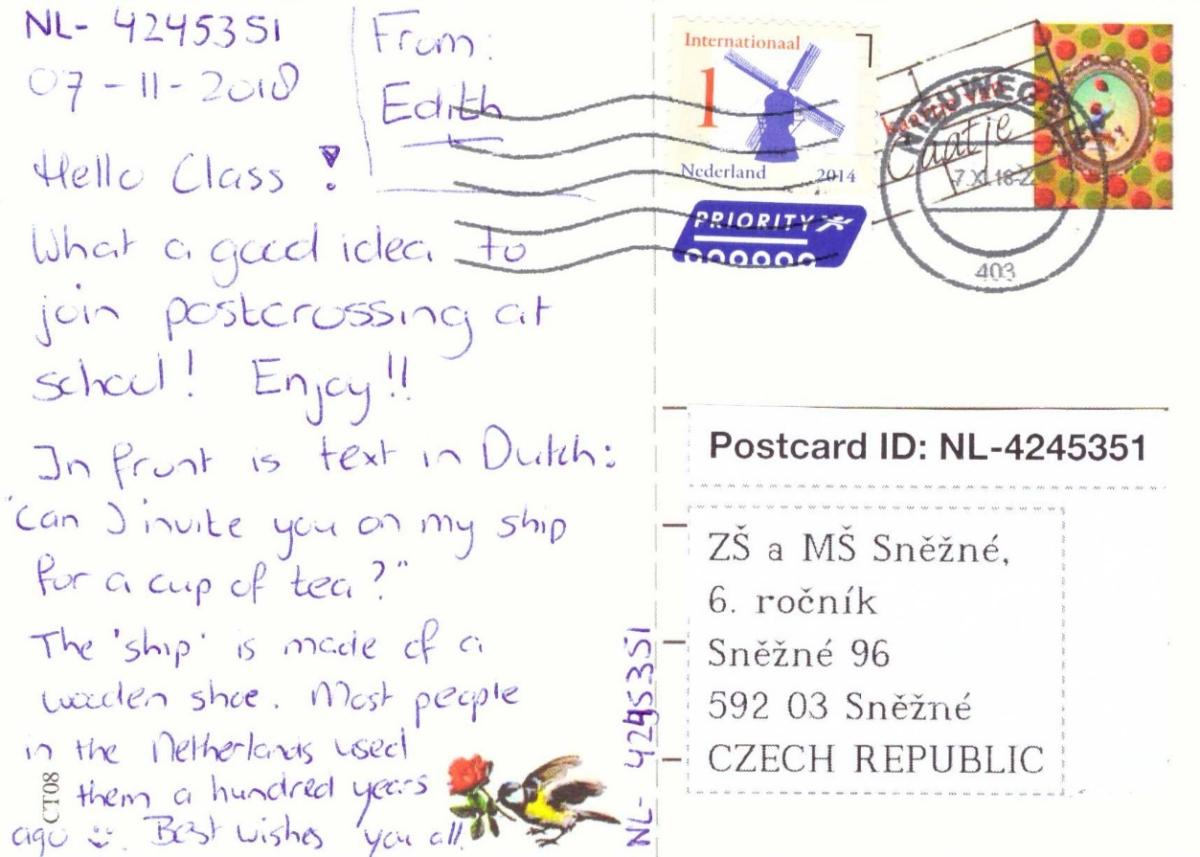 NL- 4245351
07-11-2018
From:
Edith
Hello Class!
What a good idea to
join postcrossing at
school! Enjoy!!
In front is text in Dutch:
"Can I invite you on my ship
for a cup of tea?"
The 'ship' is made of a
wooden shoe. Most people
in the Netherlands used
them a hundred years
ago :) Best wishes you all.
CT08
NL- 4245351
Internationaal
1
Nederland 2014
PRIORITY
kaartje van
Caatje
NIEUWEGEIN
7.XI.18-2
403
Postcard ID: NL-4245351
ZŠ a MŠ Sněžné,
6. ročník
Sněžné 96
592 03 Sněžné
CZECH REPUBLIC